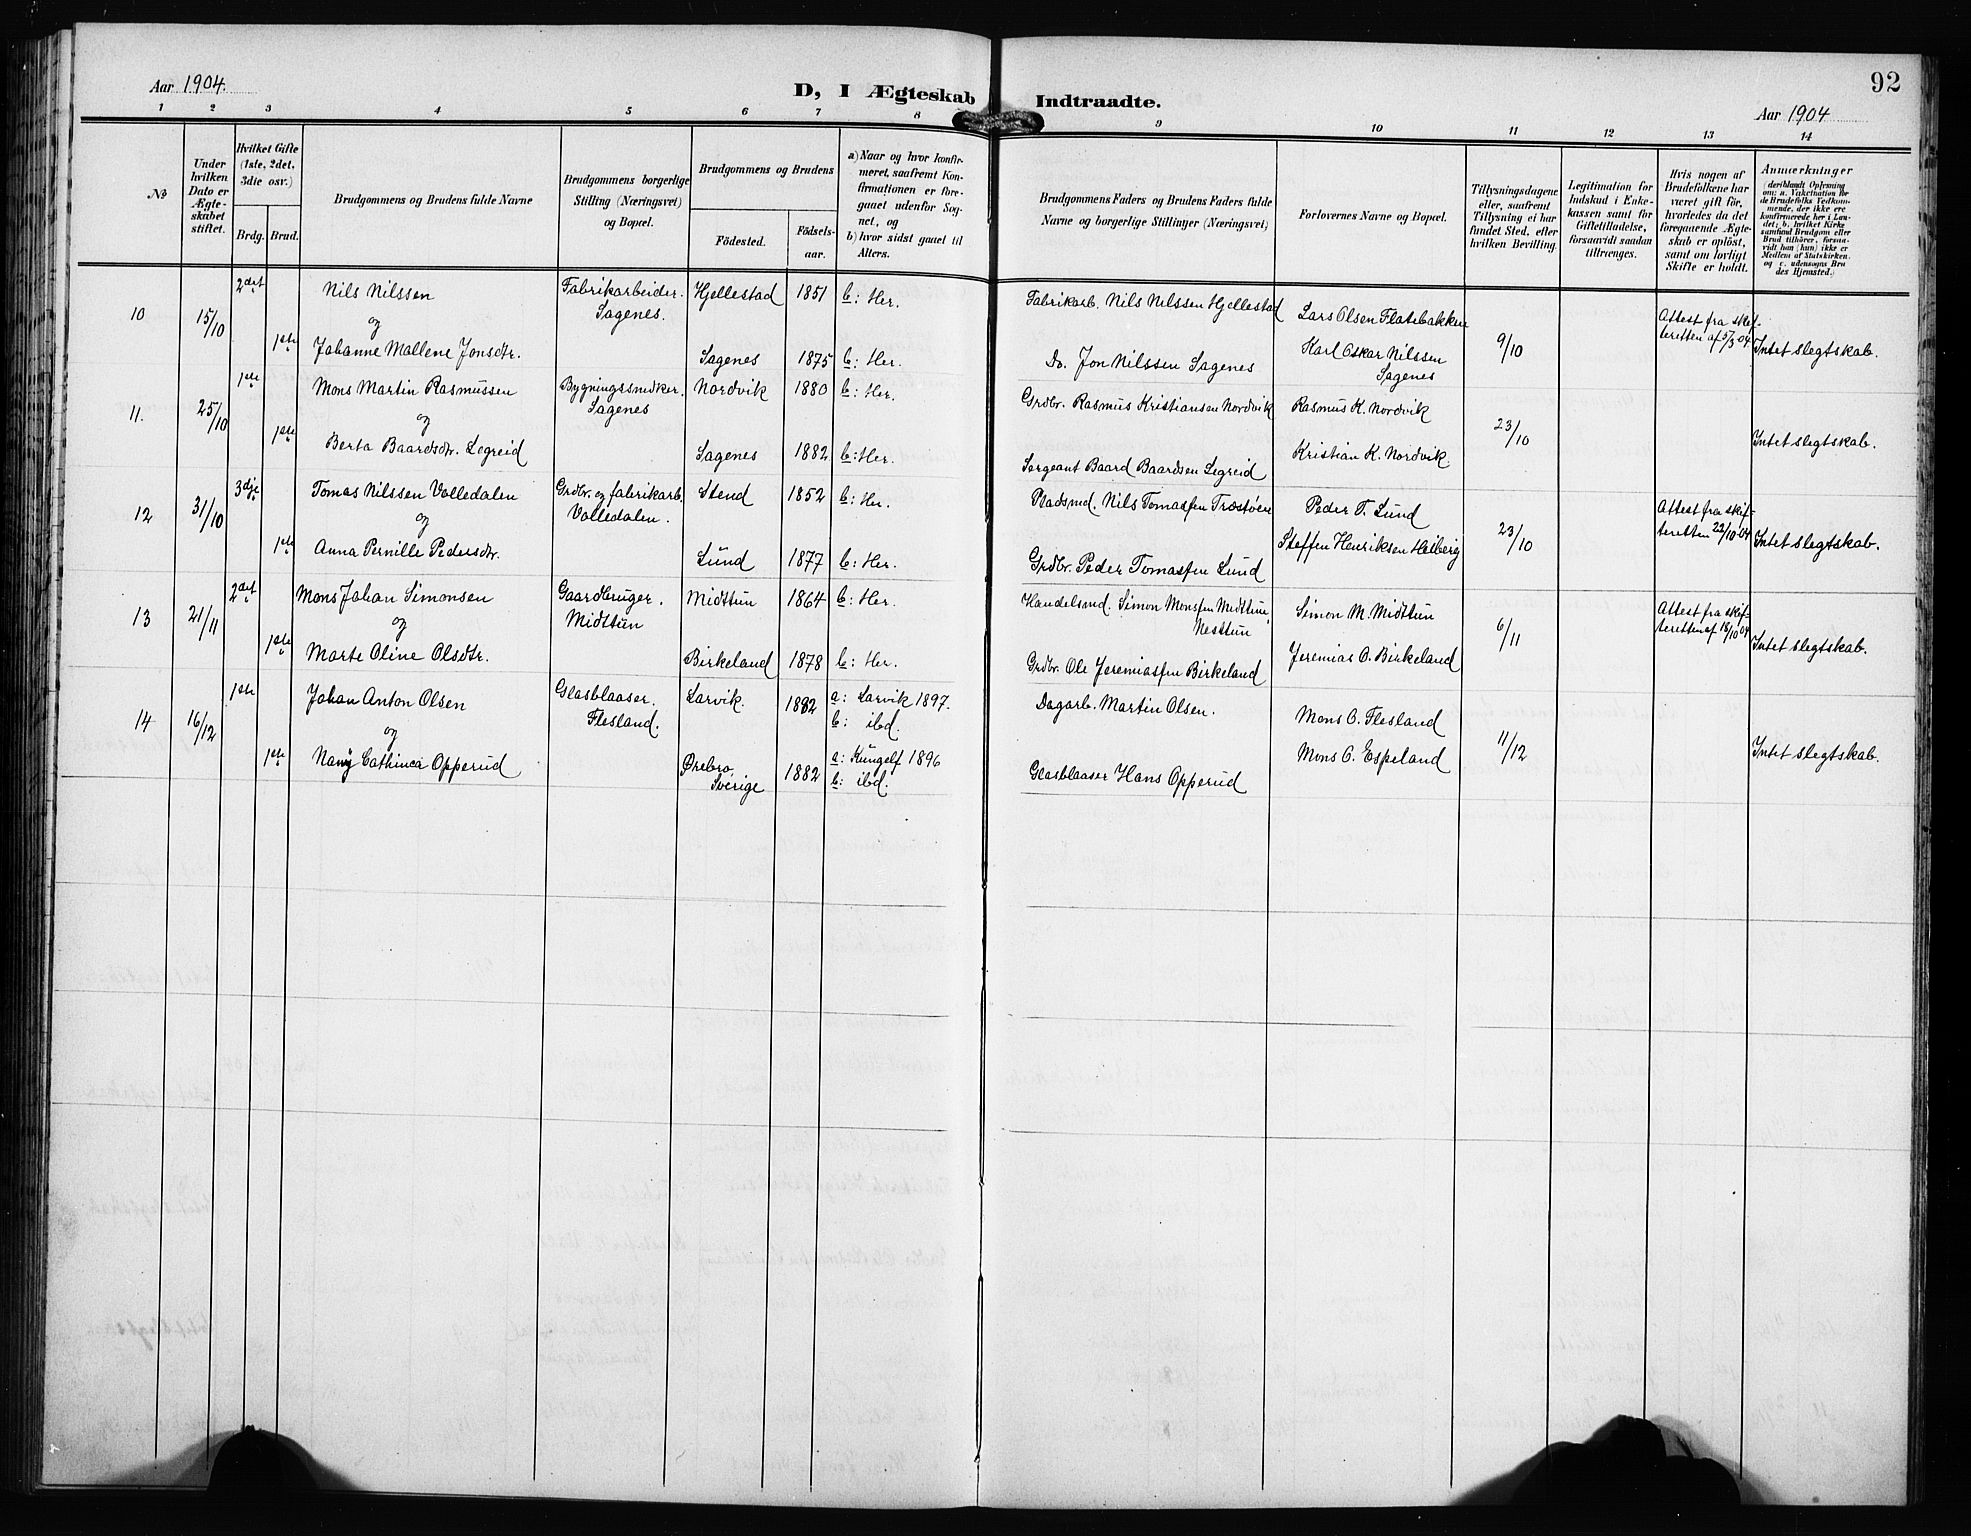 Aar 1904.
D, I Ægteskab Indtraadte.
92
Aar 1904
1 2 3 4 5 6 7 8 9 10 11 12 13 14
No
Under hvilken Dato er Ægte-skabet stiftet.
Hvilket Gifte (1ste, 2det, 3die osv.)
Brdg. Brud.
Brudgommens og Brudens fulde Navne
Brudgommens borgerlige Stilling (Næringsvei) og Bopæl.
Brudgommens og Brudens
Födested. Födsels-aar.
a) Naar og hvor konfir-meret, saafremt Kon-firmationen er fore-gaaet udenfor Sog-net, og
b) hvor sidst gaaet til Alters.
Brudgommens Faders og Brudens Faders fulde Navne og borgerlige Stillinger (Næringsvei)
Forlovernes Navne og Bopæl.
Tillysningsdagene eller, saafremt Tillysning ei har fundet Sted, efter hvilken Bevilling.
Legitimation for Indskud i Enke-kassen samt for Giftetilladelse, forsaavidt saadan tiltrænges.
Hvis nogen af Brudefolkene har været gift før, hvorledes da det foregaaende Ægte-skab er opløst, samt om lovligt Skifte er holdt.
Anmærkninger
(deriblandt Oplysning om: a. Vakcination for de Brudefolks Vedkom-mende, der ikke ere konfirmerede her i Lan-det; b. hvilket Kirke samfund Brudgom eller Brud tilhører, forsaa-vidt han (hun) ikke er Medlem af Statskirken. og c. udensogns Bru des Hjemsted.)
10 15/10 2det Nils Nilssen Fabrikarbeider. Sagenes. Hjellestad 1851 b: Her. Fabrikarb. Nils Nilssen Hjellestad Lars Olsen Flatebakken 9/10 Attest fra skif-teretten af 5/3 04.
og
1ste Johanne Mallene Jonsdtr. Sagenes 1875 b: Her. Do. Jon Nilssen Sagenes Karl Oskar Nilssen Sagenes Intet slegtskab.
11. 25/10 1ste Mons Martin Rasmussen Bygningssnedker. Sagenes Nordvik 1880 b: Her. Grdbr. Rasmus Kristiansen Nordvik Rasmus K. Nordvik 23/10
og
1ste Berta Baardsdtr. Legreid Sagenes 1882 b: Her. Sergeant Baard Baardsen Legreid Kristian K. Nordvik Intet slegtskab.
12 31/10 3dje Tomas Nilssen Volledalen Grdbr. og fabrikarb. Volledalen. Stend 1852 b: Her. Pladsmd. Nils Tomassen Træstøen Peder T. Lund 23/10 Attest fra skif-teretten 22/10 04
og
1ste Anna Pernille Pedersdtr. Lund 1877 b: Her. Grdbr. Peder Tomassen Lund Steffen Henriksen Heiberg Intet slegtskab.
13 21/11 2det Mons Johan Simonsen Gaardbruger. Midttun Midttun 1864 b: Her. Handelsmd. Simon Monssen Midttun, Nesttun Simon M. Midttun 6/11 Attest fra skif-teretten af 18/10 04
og
1ste Marte Oline Olsdtr. Birkeland 1878 b: Her. Grdbr. Ole Jeremiassen Birkeland Jeremias O. Birkeland Intet slegtskab.
14 16/12 1ste Johan Anton Olsen Glasblaaser. Flesland. Larvik. 1882 a: Larvik 1897. b: ibd. Dagarb. Martin Olsen. Mons O. Flesland 11/12
og
1ste Nany Cathinca Opperud Ørebro, Sverige 1882 a: Kungelf 1896 b: ibd. Glasblaaser Hans Opperud Mons O. Espeland Intet slegtskab.